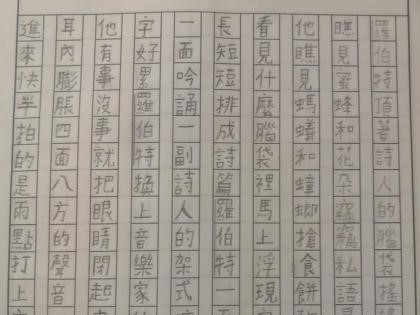 羅伯特頂著詩人的腦袋搖
瞧見蜜蜂和花朵竊竊私語
他瞧見螞蟻和蟑螂搶食餅
看見什麼腦袋裡馬上浮現
長短短排成詩篇羅伯特一
一面吟誦一副詩人的架式
字好累羅伯特換上音樂家
他有事沒事就把眼睛閉起
耳內膨脹四面八方的聲音
進來快半拍的是雨點打上